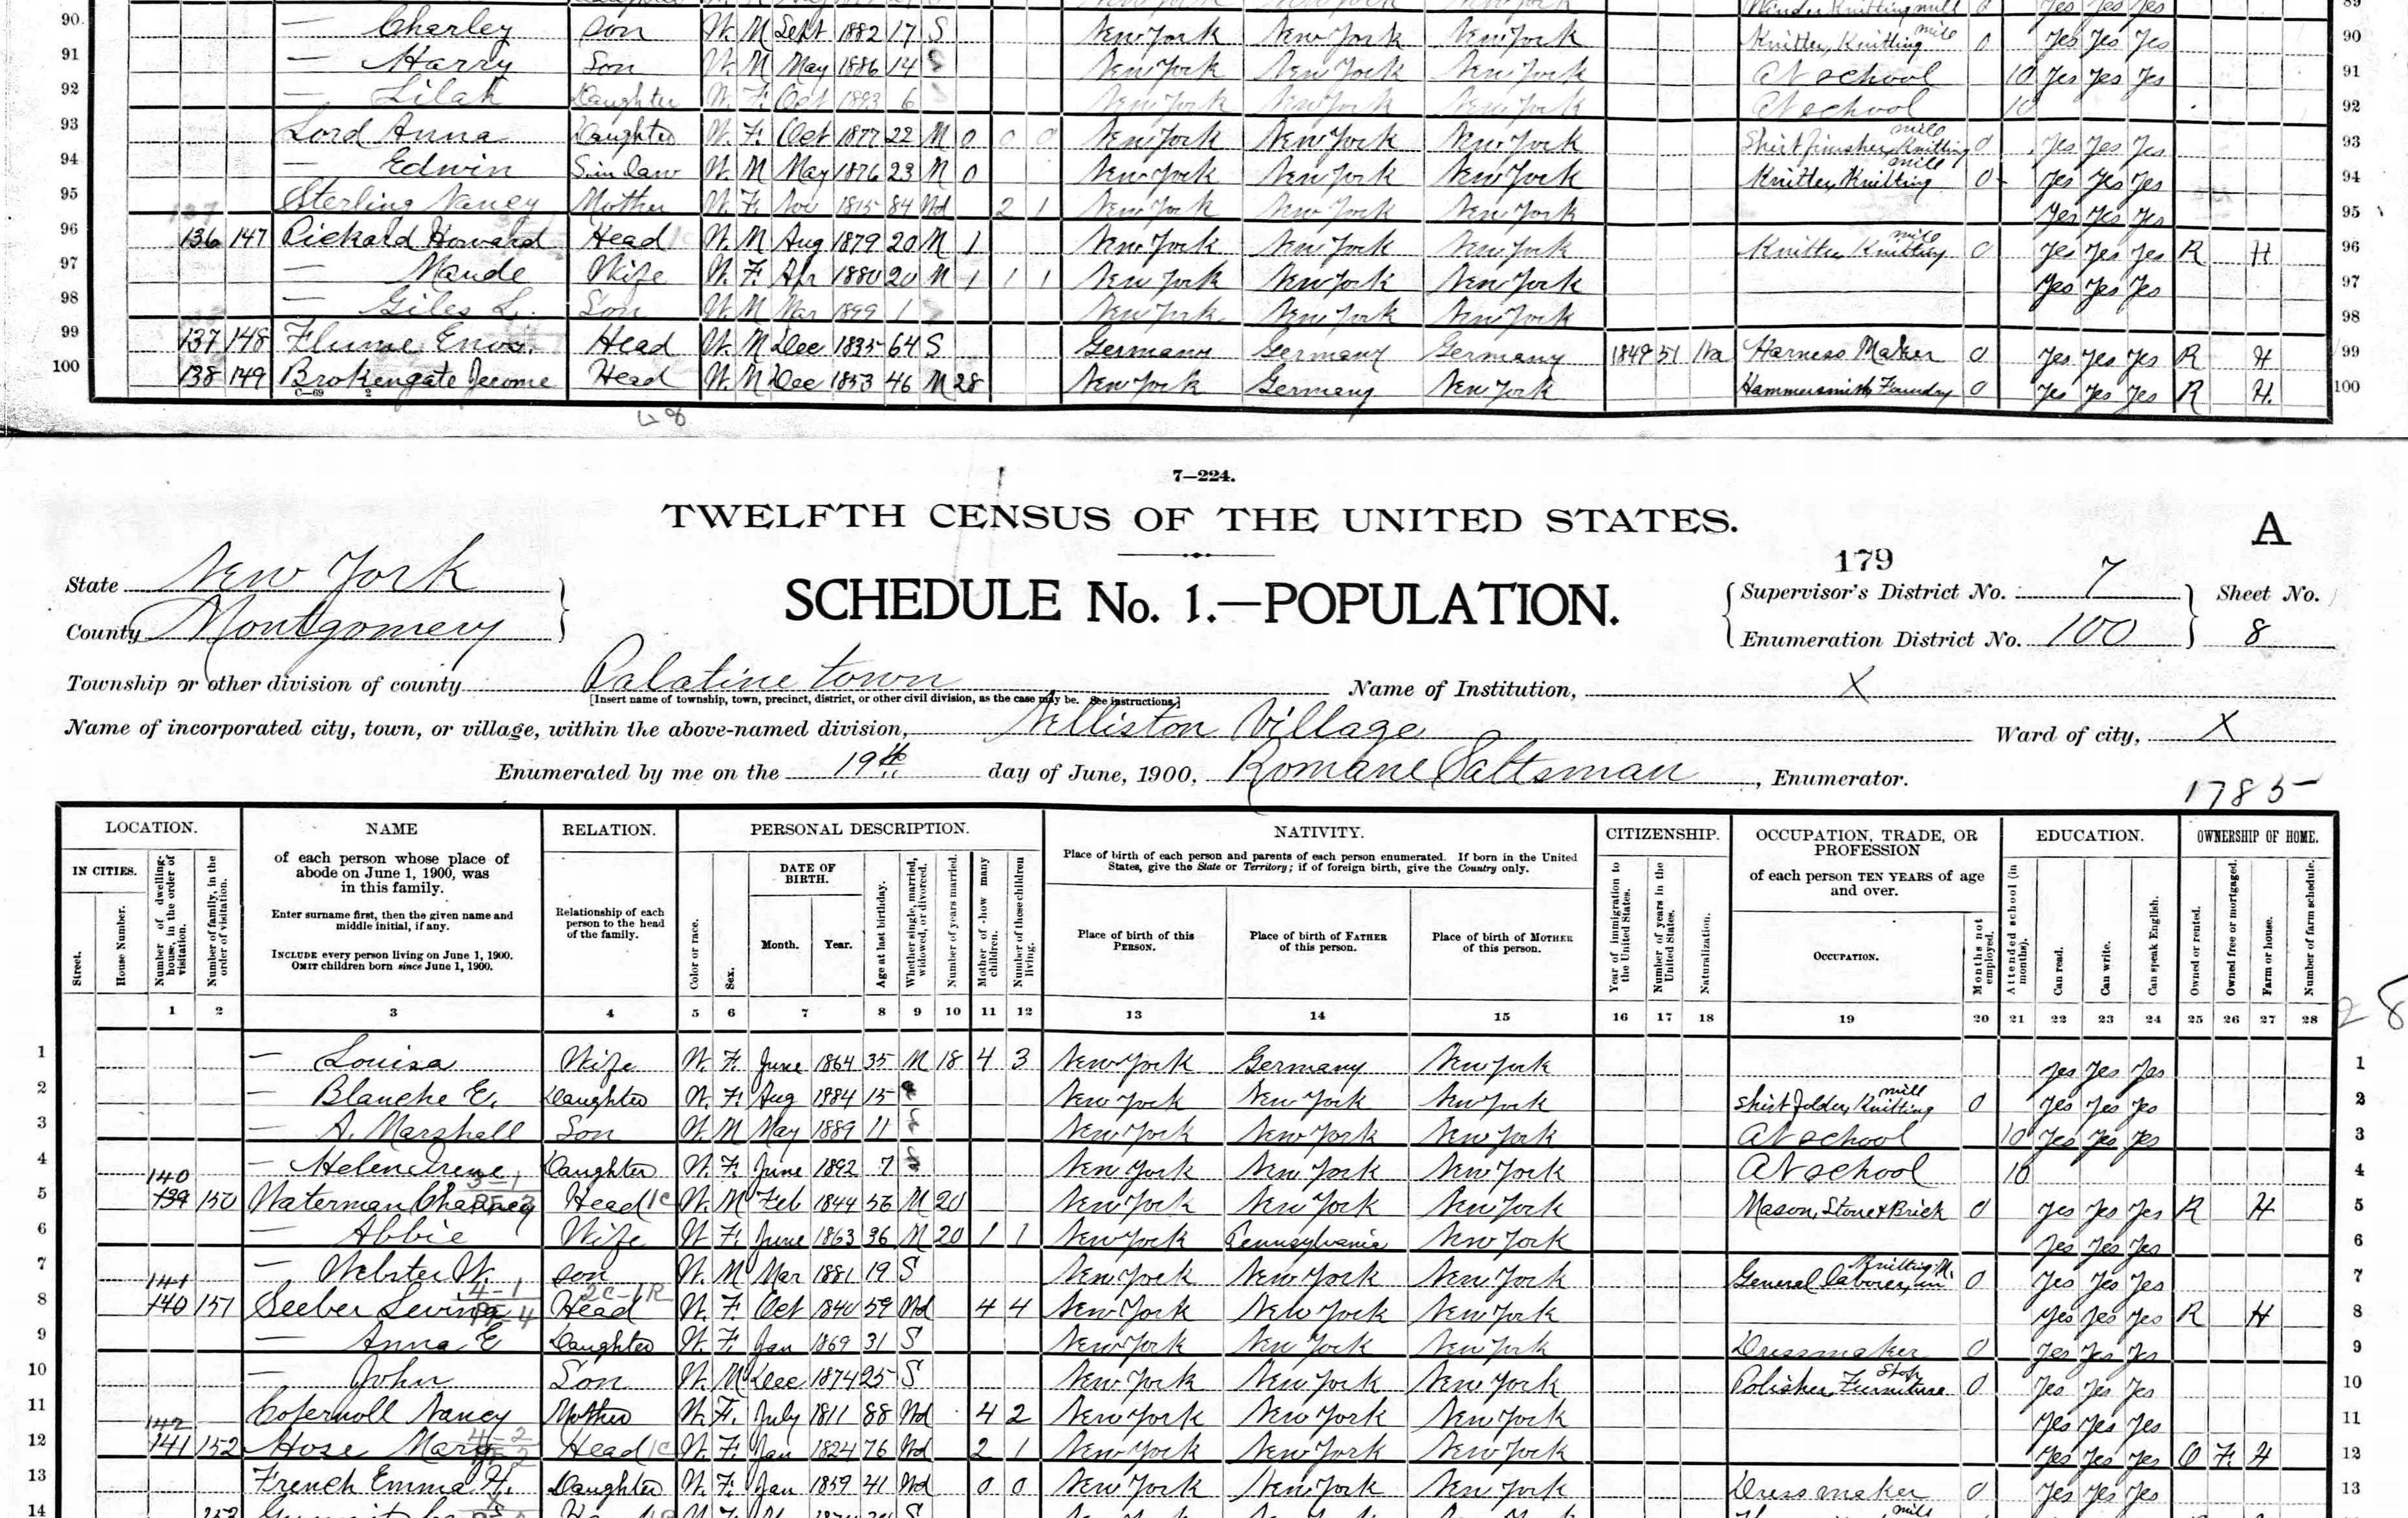 90 — Charley Son W. M Sept 1882 17 S New York New York New York Knitter, Knitting mill 0 Yes Yes Yes 90
91 — Harry Son W. M May 1886 14 S New York New York New York At school 10 Yes Yes Yes 91
92 — Lilah Daughter W. F. Oct 1893 6 New York New York New York At school 10 92
93 Lord Anna Daughter W. F. Oct 1877 22 M 0 0 0 New York New York New York Shirt finisher, Knitting mill 0 Yes Yes Yes 93
94 — Edwin S. in law W. M May 1876 23 M 0 New York New York New York Knitter, Knitting mill 0 Yes Yes Yes 94
95 Sterling Nancy Mother W. F. Nov 1815 84 Wd 2 1 New York New York New York Yes Yes Yes 95
96 136 147 Pickard Howard Head W. M Aug 1879 20 M 1 New York New York New York Knitter, Knitting mill 0 Yes Yes Yes R H 96
97 — Maude Wife W. F. Apr 1880 20 M 1 1 1 New York New York New York Yes Yes Yes 97
98 — Giles L. Son W. M Mar 1899 1 New York New York New York 98
99 137 148 Flume Enos. Head W. M Dec 1835 64 S Germany Germany Germany 1849 51 Na Harness Maker 0 Yes Yes Yes R H 99
100 138 149 Brokengate Jerome Head W. M Dec 1853 46 M 28 New York Germany New York Hammersmith, Foundry 0 Yes Yes Yes R H. 100
7—224.
TWELFTH CENSUS OF THE UNITED STATES.
A
State New York
179
SCHEDULE No. 1.—POPULATION.
Supervisor's District No. 7 Sheet No.
County Montgomery
Enumeration District No. 100 8
Township or other division of county Palatine town Name of Institution, X
[Insert name of township, town, precinct, district, or other civil division, as the case may be. See instructions.]
Name of incorporated city, town, or village, within the above-named division, Nelliston Village Ward of city, X
Enumerated by me on the 19th day of June, 1900, Romane Saltsman, Enumerator.
1785
LOCATION.
IN CITIES.
Street.
House Number.
Number of dwelling-house, in the order of visitation.
Number of family, in the order of visitation.
NAME
of each person whose place of
abode on June 1, 1900, was
in this family.
Enter surname first, then the given name and
middle initial, if any.
INCLUDE every person living on June 1, 1900.
OMIT children born since June 1, 1900.
RELATION.
Relationship of each
person to the head
of the family.
PERSONAL DESCRIPTION.
Color or race.
Sex.
DATE OF
BIRTH.
Month. Year.
Age at last birthday.
Whether single, married, widowed, or divorced.
Number of years married.
Mother of how many children.
Number of these children living.
NATIVITY.
Place of birth of each person and parents of each person enumerated. If born in the United
States, give the State or Territory; if of foreign birth, give the Country only.
Place of birth of this
PERSON.
Place of birth of FATHER
of this person.
Place of birth of MOTHER
of this person.
CITIZENSHIP.
Year of immigration to the United States.
Number of years in the United States.
Naturalization.
OCCUPATION, TRADE, OR
PROFESSION
of each person TEN YEARS of age
and over.
OCCUPATION.
Months not employed.
EDUCATION.
Attended school (in months).
Can read.
Can write.
Can speak English.
OWNERSHIP OF HOME.
Owned or rented.
Owned free or mortgaged.
Farm or house.
Number of farm schedule.
1 2 3 4 5 6 7 8 9 10 11 12 13 14 15 16 17 18 19 20 21 22 23 24 25 26 27 28
28
1 — Louisa Wife W. F. June 1864 35 M 18 4 3 New York Germany New York Yes Yes Yes 1
2 — Blanche E. Daughter W. F. Aug 1884 15 New York New York New York Shirt folder, Knitting mill 0 Yes Yes Yes 2
3 — A. Marshall Son W. M May 1889 11 New York New York New York At school 10 Yes Yes Yes 3
4 — Helen Irene Daughter W. F. June 1892 7 New York New York New York At school 10 4
5 140 139 150 Waterman Chauncey Head W. M Feb 1844 56 M 20 New York New York New York Mason, Stone & Brick 0 Yes Yes Yes R H 5
6 — Abbie Wife W F. June 1863 36 M 20 1 1 New York Pennsylvania New York Yes Yes Yes 6
7 — Webster W. Son W. M Mar 1881 19 S New York New York New York General laborer, in Knitting M. 0 Yes Yes Yes 7
8 141 140 151 Seeber Levina Head W. F. Oct 1840 59 Wd 4 4 New York New York New York Yes Yes Yes R H 8
9 — Anna E Daughter W. F. Jan 1869 31 S New York New York New York Dressmaker 0 Yes Yes Yes 9
10 — John Son W. M Dec 1874 25 S New York New York New York Polisher, Furniture Shop 0 Yes Yes Yes 10
11 Copernoll Nancy Mother W. F. July 1811 88 Wd 4 2 New York New York New York Yes Yes Yes 11
12 142 141 152 Hose Mary Head W. F. Jan 1824 76 Wd 2 1 New York New York New York Yes Yes Yes O F. H 12
13 French Emma H. Daughter W. F. Jan 1859 41 Wd 0 0 New York New York New York Dressmaker 0 Yes Yes Yes 13
14